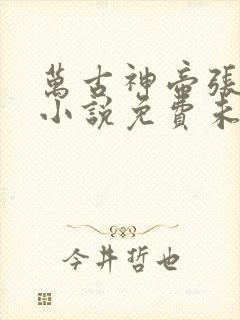 萬古神帝張
小說免費未
今井哲也